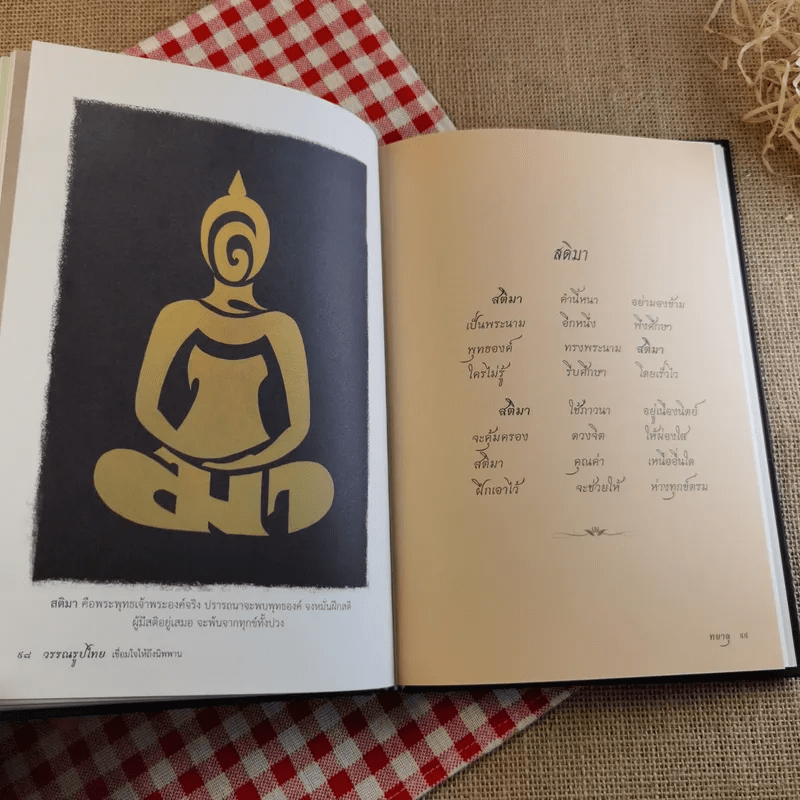 สติมา
สติมา คือพระพุทธเจ้าพระองค์จริง ปรารถนาจะพบพุทธองค์ จงหมั่นฝึกสติ
ผู้มีสติอยู่เสมอ จะพ้นจากทุกข์ทั้งปวง
๙๘ วรรณรูปไทย เชื่อมใจให้ถึงนิพพาน
สติมา
สติมา คำนี้หนา อย่ามองข้าม
เป็นพระนาม อีกหนึ่ง พึงศึกษา
พุทธองค์ ทรงพระนาม สติมา
ใครไม่รู้ รีบศึกษา โดยเร็วไว
สติมา ใช้ภาวนา อยู่เนืองนิตย์
จะคุ้มครอง ดวงจิต ให้ผ่องใส
สติมา คุณค่า เหนืออื่นใด
ฝึกเอาไว้ จะช่วยให้ ห่างทุกข์ตรม
ทยาลุ ๙๙